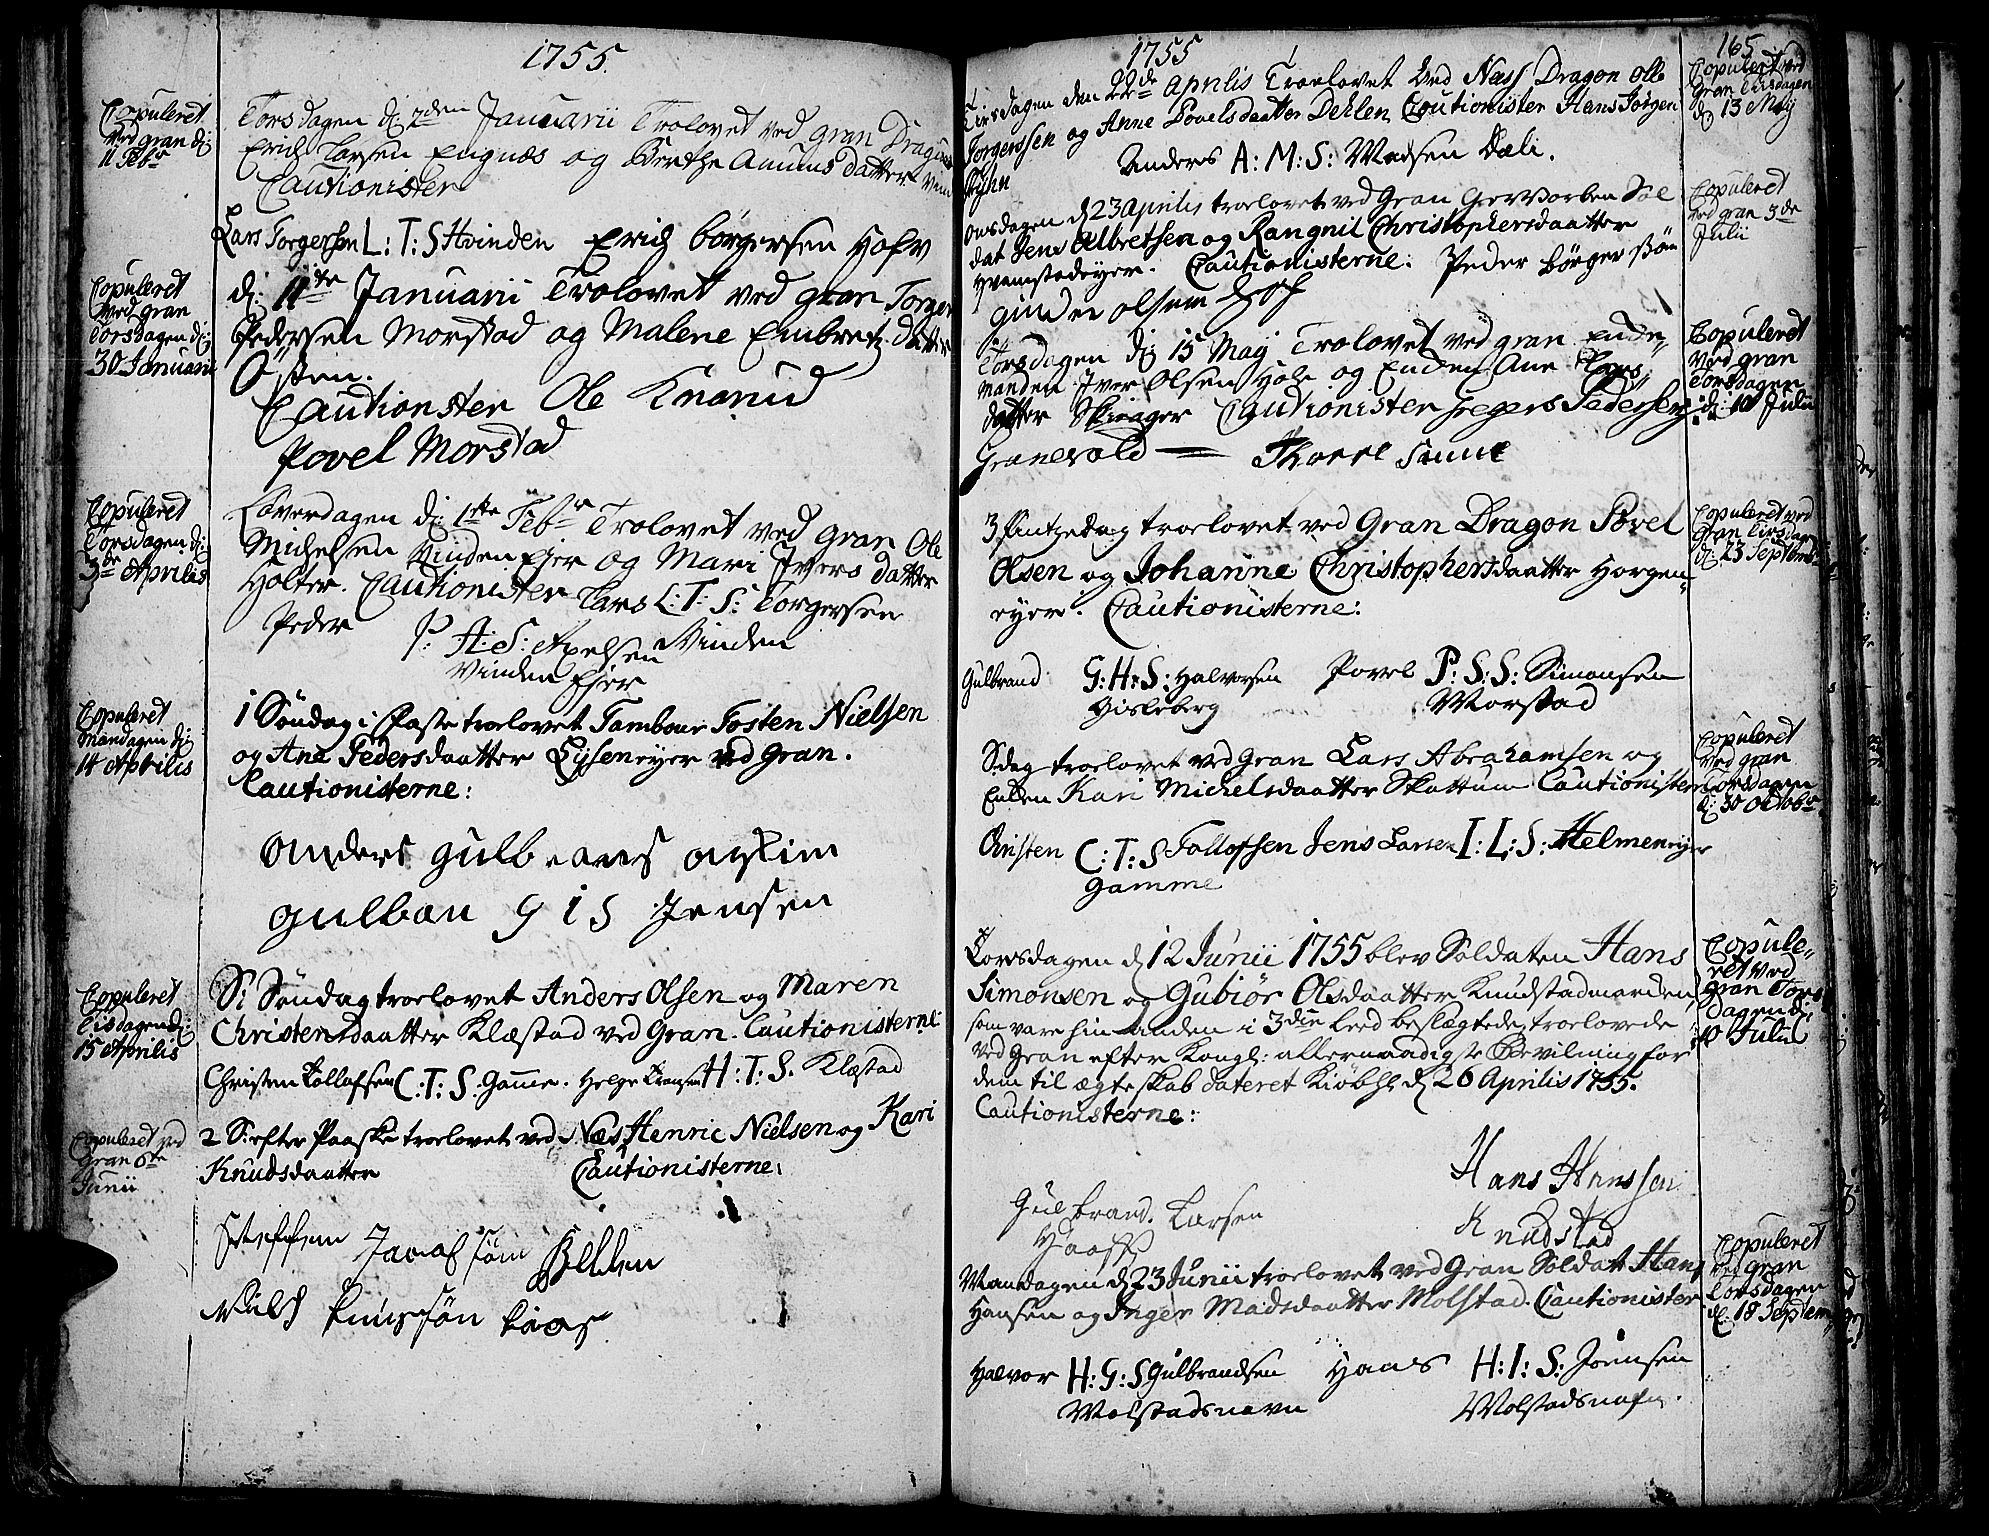 1755.
Copuleret
ved gran dj
11 Febr
Torsdagen dj 2den Januarii Trolovet ved gran Dragun
Erich Larsen Engnæs og Berthe Amunds datter
Cautionister
Lars Torgersen L: T: S Hvinden Erich börgersen Hofv
Copuleret
ved gran
Torsdagen dj
30 Januarii
dj 11te Januarii Trolovet ved gran Torger
Pedersen Morstad og Malene Embrets datter
Østen.
Cautionster Ole Knarud
Povel Morstad
Copuleret
Torsdagen dj
3de Aprilis
Löverdagen dj 1ste Febr Trolovet ved gran Ole
Michelsen Vinden Ejer og Mari Ivers datter
Holter. Cautionister Lars L: T: S: Torgersen
Peder P: A: S: Apelsen Vinden
Vinden Ejer
Copuleret
Mandagen dj
14 Aprilis
1 Söndag i Faste troelovet Tambour Tosten Nielsen
og Ane Pedersdaatter Lyseneyer ved Gran.
Cautionisterne:
Anders gulbrans
gulbran G I S Jensen
Copuleret
Tisdagen dj
15 Aprilis
S: Söndag troelovet Anders Olsen og Maren
Christensdaatter Klæstad ved Gran. Cautionisterne
Christen Tollofsen C: T: S. Gamme. Helge H: T: S. Klæstad
Copuleret ved
Gran 6te
Junii
2 S: efter Paaske troelovet ved Næs Henric Nielsen og Kari
Knudsdaatter Cautionisterne:
Steffen
1755
165
Copuleret ved
Gran Tirsdagen
dj 13 Maij
Tirsdagen den 22de Aprilis Troelovet ved Næss Dragon Olle
Torgerssen og Anne Povelsdaatter Dehlen Cautionister Hans Torgersen
Anders A: M: S: Madsen Dæli.
Copuleret
ved gran 3de
Julii
Onsdagen d 23 Aprilis troelovet ved Gran Gevorben Sol
dat Jens Albretsen og Rangnil Christophersdaatter
Hvamstadeyer. Cautionisterne: Peder börgersön
gunder olsen
Copuleret
ved gran
Torsdagen
dj: 10 Julii
Torsdagen dj 15 Maij Trolovet ved gran Enke-
manden Iver Olsen Hole og Enken Ane Lars
datter Skiager Cautionister Gregers Pedersen
Granevold
Copuleret ved
Gran Tirsdag
dj 23 Septemb
3 Pintzedag troelovet ved Gran Dragon Povel
Olsen og Johanne Christophersdaatter Horgen-
eyer. Cautionisterne:
Gulbrand G: H: S: Halvorsen Povel P: S: S: Simonsen
Gisleberg Morstad
Copuleret
ved gran
Torsdagen
dj 30 Octobr
S:dag troelovet ved Gran Lars Abrahamsen og
Enken Kari Michelsdaatter Skattum Cautionister
Christen C: T: S Tollofsen Jens Larsen I: L: S: Helmeneyer
Gamme
Copule-
ret ved
gran Tors
dagen d.
10 Julii
Torsdagen d 12 Junii 1755 blev Soldaten Hans
Simonsen og Gubiör Olsdaatter Knudstadmarden
som vare hin anden i 3die Leed beslægtede, troelovede
ved Gran efter Kongl: allernaadigste Bevilning for
dem til ægteskab dateret Kiöbh d 26 Aprilis 1755.
Cautionisterne:
Hans Hanssen
Gulbrand. Larsen
Knudstad
Copuleret
ved gran
Torsdagen
d. 18 Septem
Mandagen d 23 Junii troelovet ved Gran Soldat Hans
Hansen og Inger Madsdaatter Molstad. Cautionister
Halvor H: G: S Gulbrandsen Hans H: I: S: Joensen
Molstadsnavn Molstad